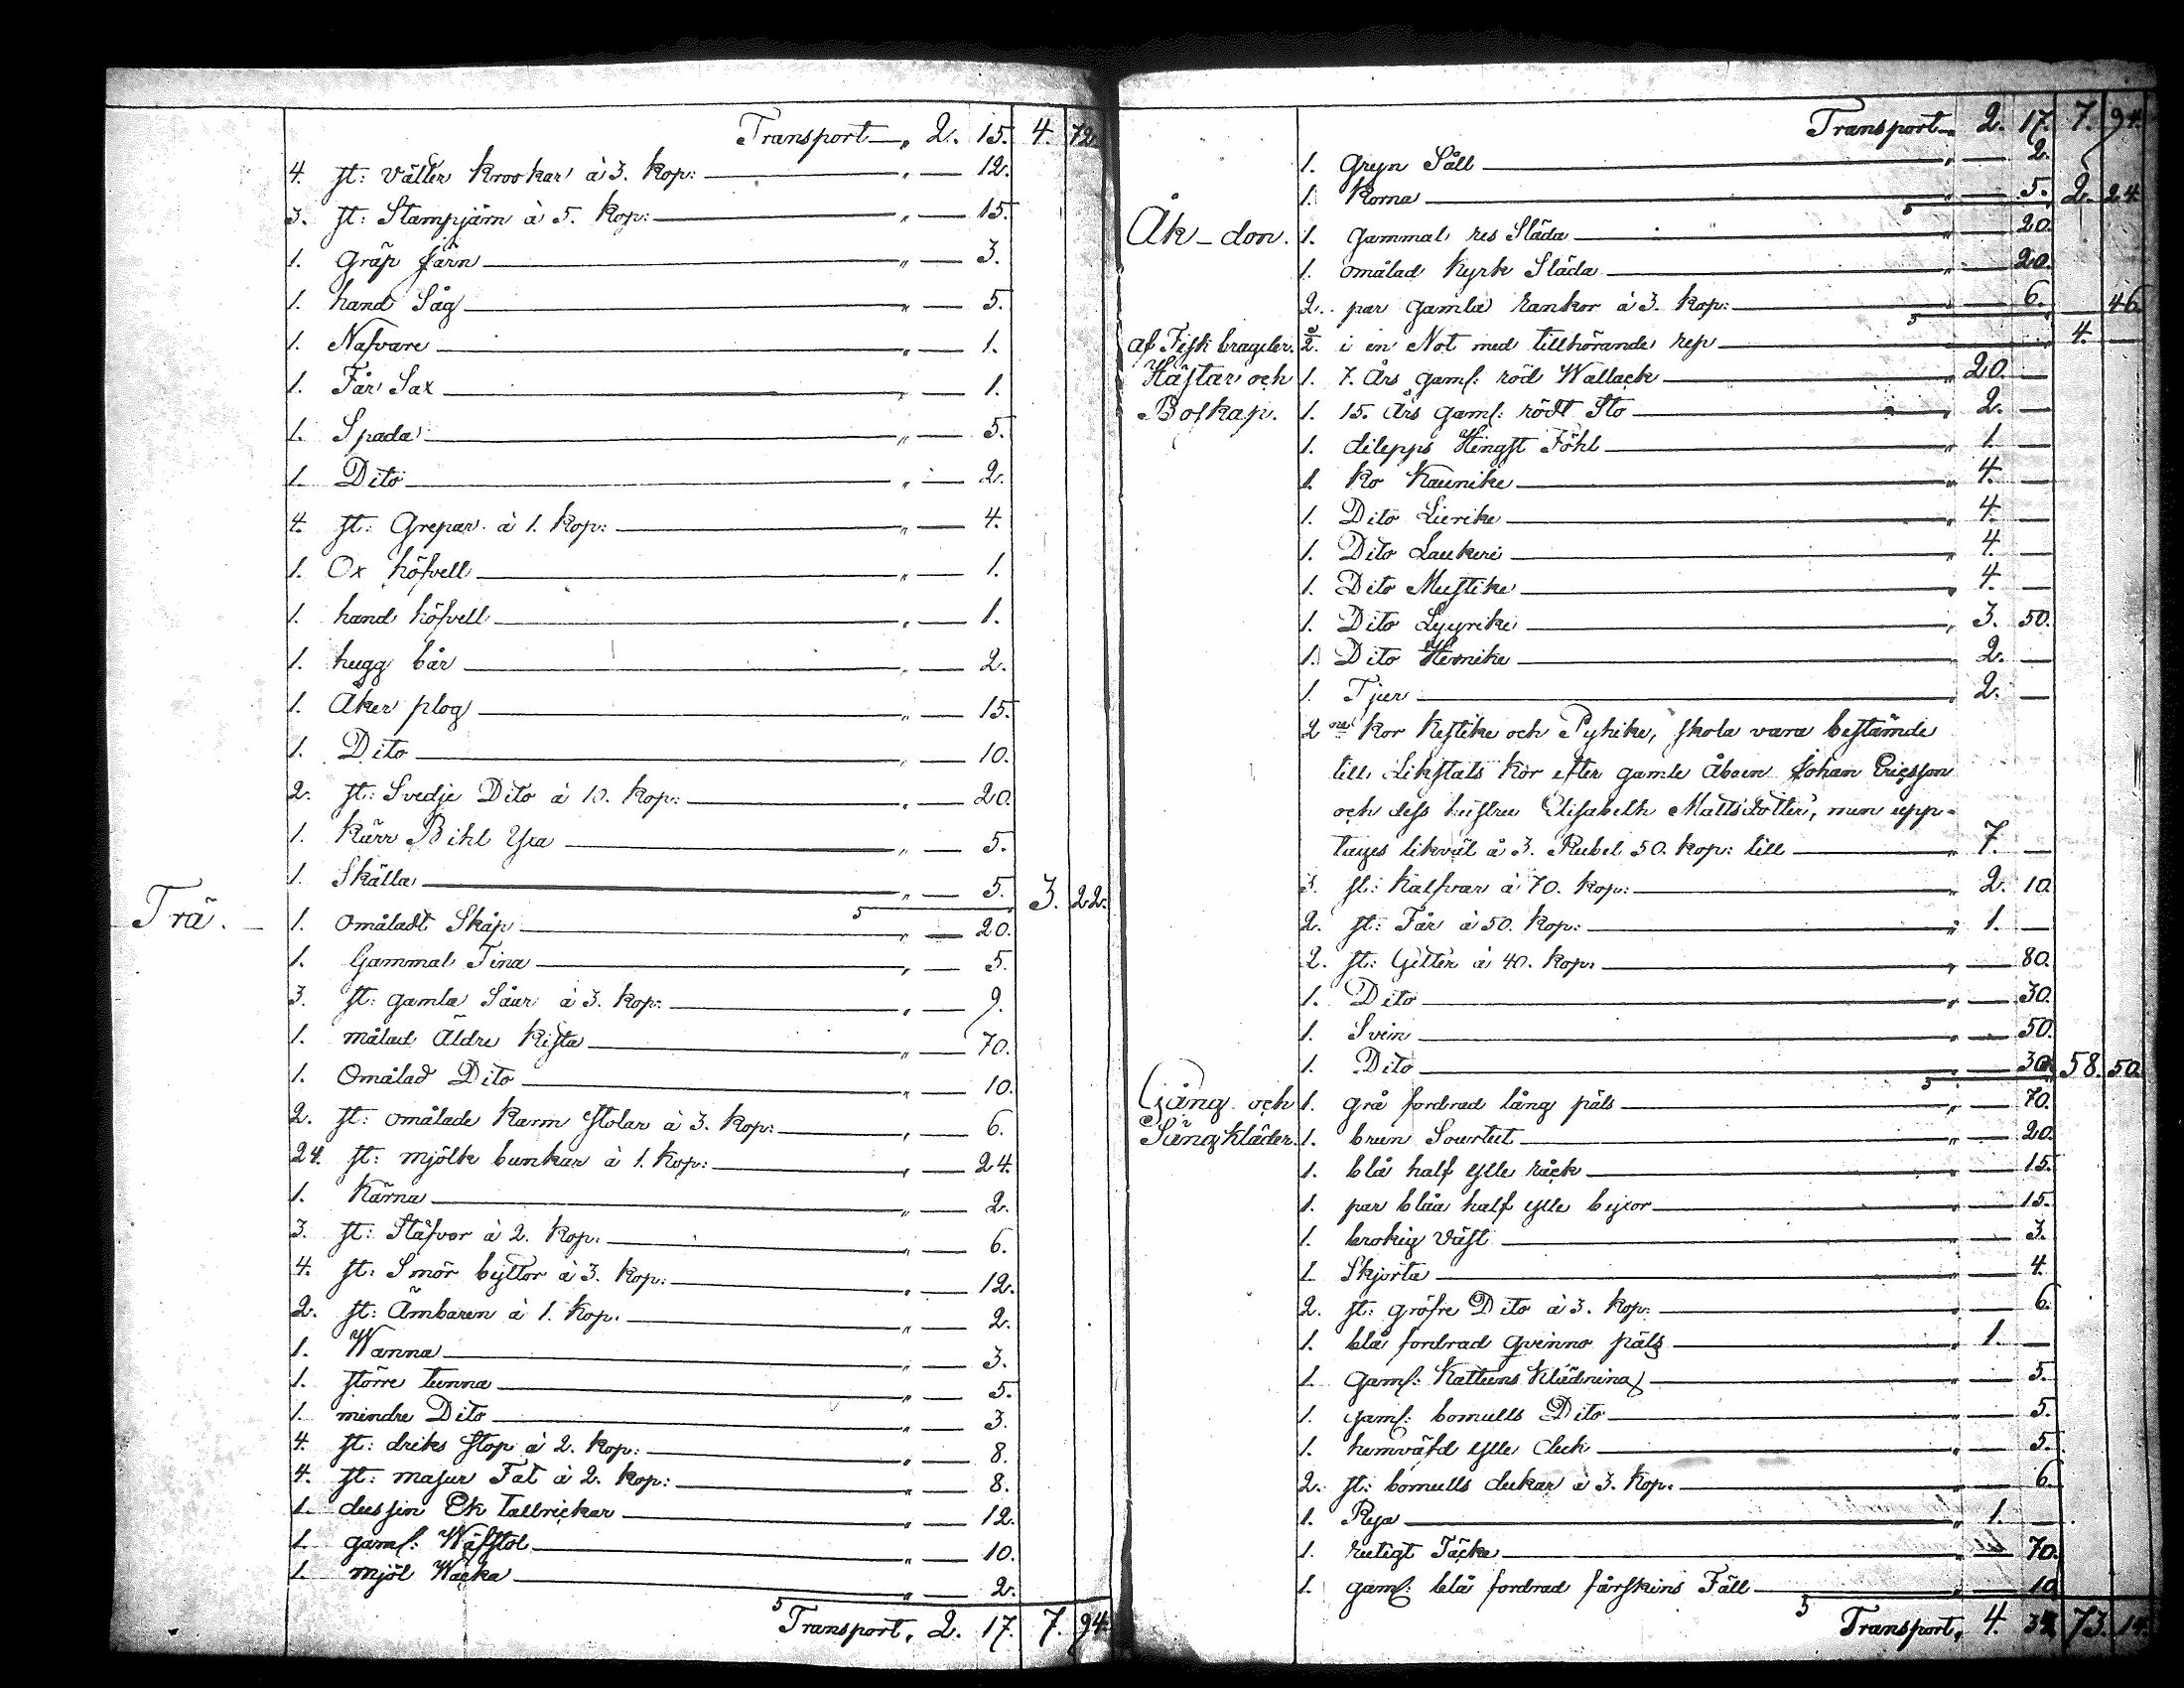 Transport „ 2. 15. 4. 72.
4. st: välter krookar à 3. kop: „ — 12.
3. st: Stampjärn à 5. kop: „ — 15.
1. gräp järn „ — 3.
1. hand Såg „ — 5.
1. Nafvare „ — 1.
1. Får Sax „ — 1.
1. Spada „ — 5.
1. Dito „ — 2.
4. st: Grepar à 1. kop: „ — 4.
1. Ox höfvell „ — 1.
1. hand höfvell „ — 1.
1. hugg bår „ — 2.
1. Åker plog „ — 15.
1. Dito „ — 10.
2. st: Svedje Dito à 10. kop: „ — 20.
1. kärr Bihl Yxa „ — 5.
1. Skälla „ — 5. 3. 22.
Trä. 1. omåladt Skåp „ — 20.
1. Gammal Tina „ — 5.
3. st: gamla Såar à 3. kop: „ — 9.
1. målad Äldre kista „ — 70.
1. Omålad Dito „ — 10.
2. st: omålade karm stolar à 3. kop: „ — 6.
24. st: mjölk bunkar à 1. kop: „ — 24.
1. kärna „ — 2.
3. st: Stäfvor à 2. kop. „ — 6.
4. st: Smör byttor à 3. kop: „ — 12.
2. st: Ämbaren à 1. kop. „ — 2.
1. Wanna „ — 3.
1. större tunna „ — 5.
1. mindre Dito „ — 3.
4. st: driks stop à 2. kop: „ — 8.
4. st: masur Fat à 2. kop: „ — 8.
1. dussin Ek tallrickar „ — 12.
1. gaml: Wäfstol „ — 10.
1. mjöl Wacka „ — 2.
5 Transport „ 2. 17. 7. 94.
Transport „ 2. 17. 7. 94.
1. gryn Såll „ — 2.
1. korna „ — 5. 2. 24.
Åk-don. 1. gammal res Släda „ — 20.
1. omålad kyrk Släda „ — 20.
2. par gamla rankor à 3. kop: „ — 6. 46.
af Fisk bragder. 2. i en Not med tillhörande rep 4. —
Hästar och 1. 7. Års gaml: röd Wallack „ 20. —
Boskap. 1. 15. Års gaml: rödt Sto „ 2. —
1. dilepps Hingst Föhl „ 1. —
1. ko Kaunike „ 4. —
1. Dito Lierike „ 4. —
1. Dito Laukeri „ 4. —
1. Dito Mustike „ 4. —
1. Dito Lyyrike „ 3. 50.
1. Dito Hernike „ 2. —
1. Tjur „ 2. —
2 kor Kestike och Pyhike, skola vara bestämde
till Likstals kor efter gamle åboen Johan Ericsson
och dess hustru Elisabeth Mattsdotter, men upp-
tages likväl à 3. Rubel 50. kop: till „ 7. —
3. st: kalfvar à 70. kop: „ 2. 10.
2. st: Får à 50. kop: „ 1. —
2. st: Getter à 40. kop: „ — 80.
1. Dito „ — 30.
1. Svin „ — 50.
1. Dito „ — 30. 58. 50.
Gång och 1. grå fordrad lång päls „ — 70.
Sängkläder. 1. brun Sourtut „ — 20.
1. blå half ylle råck „ — 15.
1. par blåa half ylle byxor „ — 15.
1. brokig väst „ — 3.
1. Skjorta „ — 4.
2. st: gröfre Dito à 3. kop: „ — 6.
1. blå fordrad qvinno päls „ 1. —
1. gaml: kattuns Klädning „ — 5.
1. gaml: bomulls Dito „ — 5.
1. hemväfd ylle duk „ — 5.
2. st: bomulls dukar à 3. kop. „ — 6.
1. Rya „ 1. —
1. rutigt Täcke „ — 70.
1. gaml: blå fordrad fårskins Fäll „ — 10.
5 Transport „ 4. 34. 73. 14.